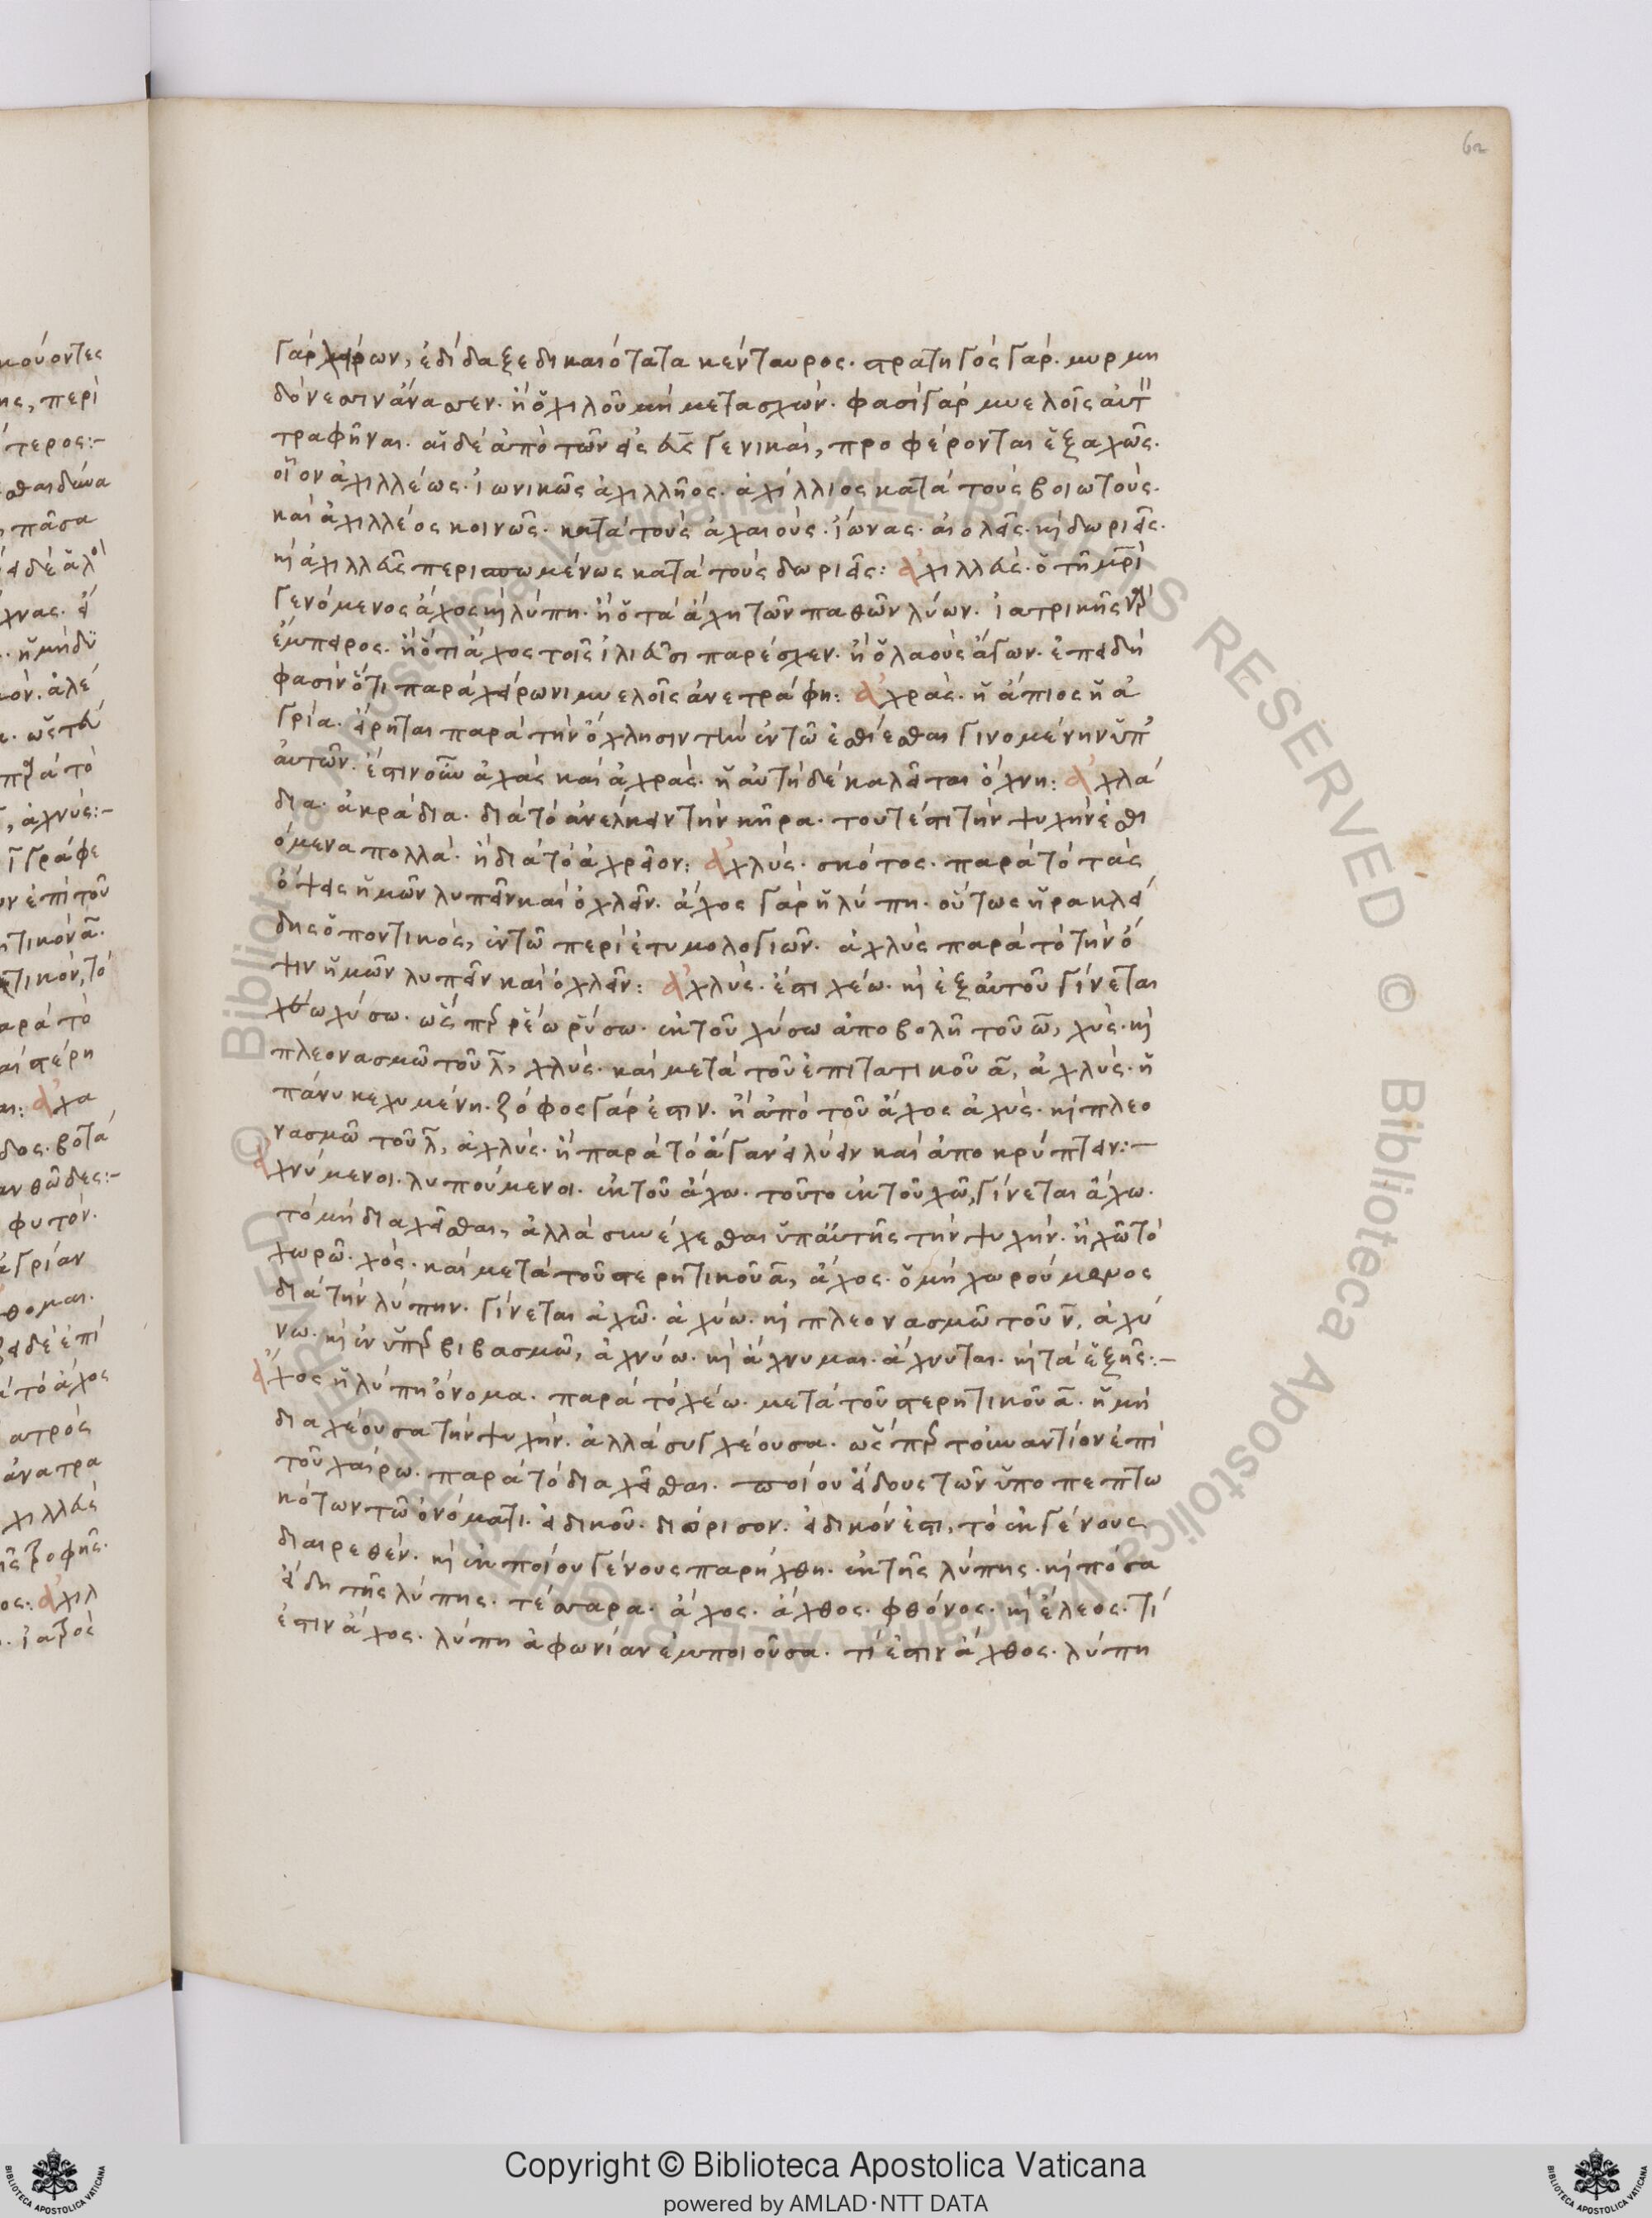 62
γὰρ χείρων, ἐδίδαξε δικαιότατα κένταυρος. στρατηγὸς γάρ. μυρμη
δόνεσσιν ἄνασσεν. ἢ ὁ χιλοῦ μὴ μετασχών. φασὶ γὰρ μυελοῖς αὐτ
τραφῆναι. αἱ δὲ ἀπὸ τῶν εἰς εὺς γενικαί, προφέρονται ἑξαχῶς.
οἷον ἀχιλλέως. ἰωνικῶς ἀχιλλῆος. ἀχίλλιος κατὰ τοὺς βοιωτούς.
καὶ ἀχιλλέος κοινῶς. κατὰ τοὺς ἀχαιούς. ἴωνας. αἰολεῖς. καὶ δωριεῖς.
καὶ ἀχιλλεῦς περισπωμένως κατὰ τοὺς δωριεῖς: ἀχιλλεύς. ὁ τῇ μρὶ
γενόμενος ἄχος καὶ λύπη. ἢ ὁ τὰ ἄχη τῶν παθῶν λύων. ἰατρικῆς γὰρ
ἔμπειρος. ἢ ὅτι ἄχος τοῖς ἰλιεῦσι παρέσχεν. ἢ ὁ λαοὺς ἄγων. ἐπειδὴ
φασὶν ὅτι παρὰ χείρωνι μυελοῖς ἀνετράφη: ἀχράς. ἡ ἄπιος ἡ ἀ
γρία. εἴρηται παρὰ τὴν ὄχλησιν τὴν ἐν τῶ ἐσθίεσθαι γινομένην ὑπ'
αὐτῶν. ἔστιν οὖν ἀχὰς καὶ ἀχράς. ἡ αὐτὴ δὲ καλεῖται ὄχνη: ἀχλά
δια. ἀκράδια. διὰ τὸ ἀνέλκειν τὴν κῆρα. τουτέστι τὴν ψυχὴν ἐσθι
όμενα πολλά. ἢ διὰ τὸ ἀχρεῖον: ἀχλύς. σκότος. παρὰ τὸ τὰς
ὄψεις ἡμῶν λυπεῖν καὶ ὀχλεῖν. ἄχος γὰρ ἡ λύπη. οὕτως ἡρακλεί
δης ὁ ποντικός, ἐν τῶ περὶ ἐτυμολογιῶν. ἀχλὺς παρὰ τὸ τὴν ὄ
ψιν ἡμῶν λυπεῖν καὶ ὀχλεῖν: ἀχλύς. ἔστι χέω. καὶ ἐξ αὐτοῦ γίνεται
χεύω χύσω. ὡς πρ ῥέω ῥύσω. ἐκ τοῦ χύσω ἀποβολῆ τοῦ ω, χύς. καὶ
πλεονασμῶ τοῦ λ, χλύς. καὶ μετὰ τοῦ ἐπιτατικοῦ α, ἀχλύς. ἡ
πάνυ κεχυμένη. ζόφος γάρ ἐστιν. ἢ ἀπὸ τοῦ ἄχος ἀχύς. καὶ πλεο
νασμῶ τοῦ λ, ἀχλύς. ἢ παρὰ τὸ ἄγαν εἰλύειν καὶ ἀποκρύπτειν:–
ἀχνύμενοι. λυπούμενοι. ἐκ τοῦ ἄχω. τοῦτο ἐκ τοῦ χῶ, γίνεται ἄχω.
τὸ μὴ διαχεῖσθαι, ἀλλὰ συνέχεσθαι ὑπ' αὐτῆς τὴν ψυχήν. ἢ χῶ τὸ
χωρῶ. χός. καὶ μετὰ τοῦ στερητικοῦ α, ἄχος. ὁ μὴ χωρούμενος
διὰ τὴν λύπην. γίνεται ἀχῶ. ἀχύω. καὶ πλεονασμῶ τοῦ ν, ἀχύ
νω. καὶ ἐν ὑπρβιβασμῶ, ἀχνύω. καὶ ἄχνυμαι. ἄχνυται. καὶ τὰ ἑξῆς:–
ἄχος ἡ λύπη ὄνομα. παρὰ τὸ χέω. μετὰ τοῦ στερητικοῦ α. ἡ μὴ
διαχέουσα τὴν ψυχήν. ἀλλὰ συγχέουσα. ὡς πρ τοὐναντίον ἐπὶ
τοῦ χαίρω. παρὰ τὸ διαχεῖσθαι. ποίου εἴδους τῶν ὑποπεπτω
κότων τῶ ὀνόματι. εἰδικοῦ. διόρισον. εἰδικόν ἐστι, τὸ ἐκ γένους
διαιρεθέν. καὶ ἐκ ποίου γένους παρήχθη. ἐκ τῆς λύπης. καὶ πόσα
εἴδη τῆς λύπης. τέσσαρα. ἄχος. ἄχθος. φθόνος. καὶ ἔλεος. τί
ἐστιν ἄχος. λύπη ἀφωνίαν ἐμποιοῦσα. τί ἐστιν ἄχθος. λύπη
Copyright © Biblioteca Apostolica Vaticana
powered by AMLAD·NTT DATA